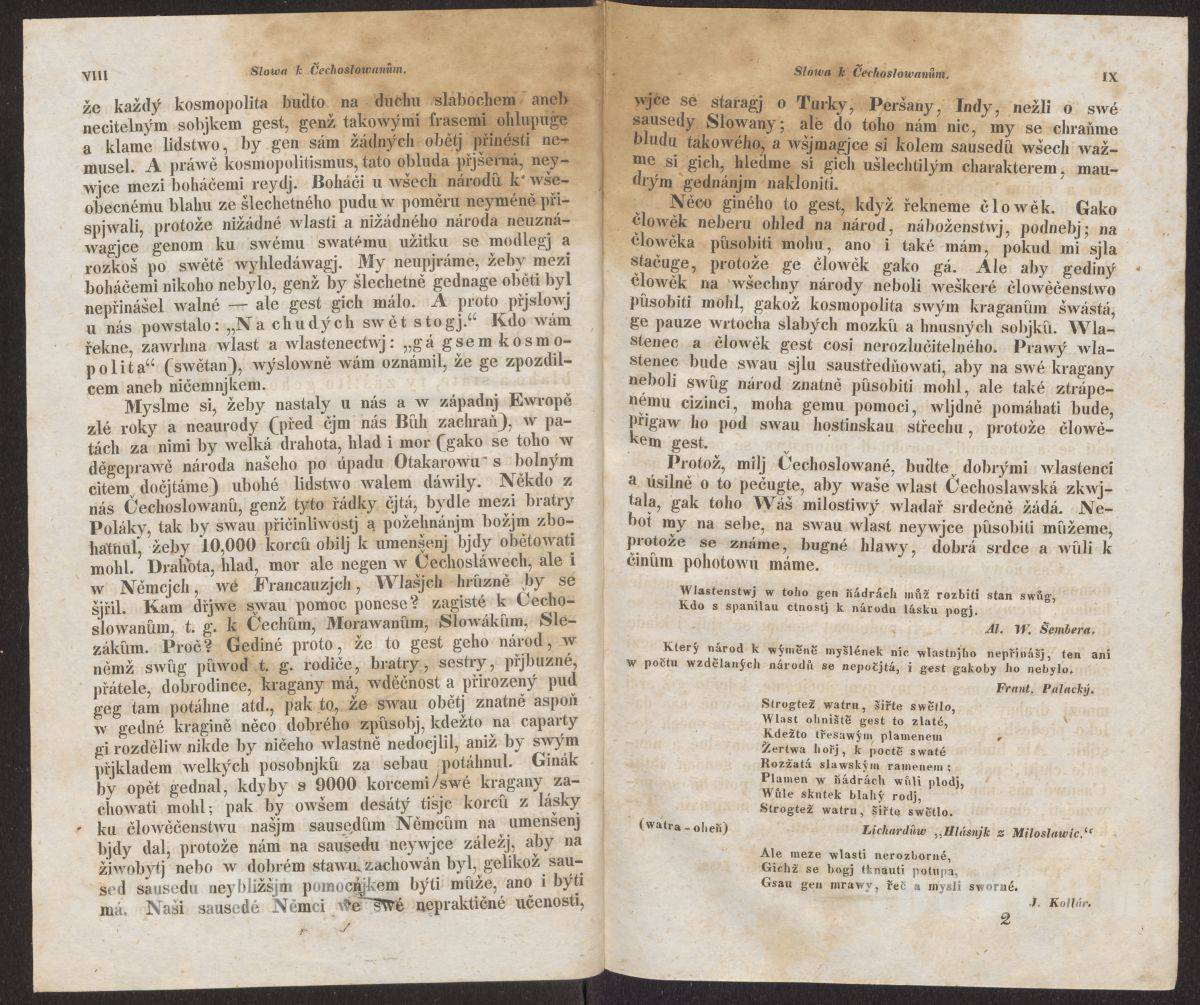 VIII
Slowa k Čechoslowanům.
že každý kosmopolita buďto na duchu slabochem aneb
necitelným sobjkem gest, genž takowými frasemi ohlupuge
a klame lidstwo, by gen sám žádných obětj přinésti ne-
musel. A práwě kosmopolitismus, tato obluda přjšerná, ney-
wjce mezi boháčemi reydj. Boháči u wšech národů k wše-
obecnému blahu ze šlechetného pudu w poměru neyméně při-
spjwali, protože nižádné wlasti a nižádného národa neuzná-
wagjce genom ku swému swatému užitku se modlegj a
rozkoš po swětě wyhledáwagj. My neupjráme, žeby mezi
boháčemi nikoho nebylo, genž by šlechetně gednage oběti byl
nepřinášel walné — ale gest gich málo. A proto přjslowj
u nás powstalo: „Na chudých swět stogj.“ Kdo wám
řekne, zawrhna wlast a wlastenectwj: „gá gsem kosmo-
polita“ (swětan), wýslowně wám oznámil, že ge zpozdil-
cem aneb ničemnjkem.
Myslme si, žeby nastaly u nás a w západnj Ewropě
zlé roky a neaurody (před čjm nás Bůh zachraň), w pa-
tách za nimi by welká drahota, hlad i mor (gako se toho w
děgeprawě národa našeho po úpadu Otakarowu s bolným
citem dočjtáme) ubohé lidstwo walem dáwily. Někdo z
nás Čechoslowanů, genž tyto řádky čjtá, bydle mezi bratry
Poláky, tak by swau přičinliwostj a požehnánjm božjm zbo-
hatnul, žeby 10,000 korců obilj k umenšenj bjdy obětowati
mohl. Drahota, hlad, mor ale negen w Čechosláwech, ale i
w Němcjch, we Francauzjch, Wlašjch hrůzně by se
šjřil. Kam dřjwe swau pomoc ponese? zagisté k Čecho-
slowanům, t. g. k Čechům, Morawanům, Slowákům, Sle-
zákům. Proč? Gediné proto, že to gest geho národ, w
němž swůg půwod t. g. rodiče, bratry, sestry, přjbuzné,
přátele, dobrodince, kragany má, wděčnost a přirozený pud
geg tam potáhne atd., pak to, že swau obětj znatně aspoň
w gedné kragině něco dobrého způsobj, kdežto na caparty
gi rozděliw nikde by ničeho wlastně nedocjlil, aniž by swým
přjkladem welkých posobnjků za sebau potáhnul. Ginák
by opět gednal, kdyby s 9000 korcemi swé kragany za-
chowati mohl; pak by owšem desátý tisjc korců z lásky
ku člowěčenstwu našjm sausedům Němcům na umenšenj
bjdy dal, protože nám na sausedu neywjce záležj, aby na
žiwobytj nebo w dobrém stawu zachowán byl, gelikož sau-
sed sausedu neybližšjm pomocnjkem býti může, ano i býti
má. Naši sausedé Němci we swé nepraktičné učenosti,
Slowa k Čechoslowanům.
IX
wjce se staragj o Turky, Peršany, Indy, nežli o swé
sausedy Slowany; ale do toho nám nic, my se chraňme
bludu takowého, a wšjmagjce si kolem sausedů wšech waž-
me si gich, hleďme si gich ušlechtilým charakterem, mau-
drým gednánjm nakloniti.
Něco giného to gest, když řekneme člowěk. Gako
člowěk neberu ohled na národ, náboženstwj, podnebj; na
člowěka působiti mohu, ano i také mám, pokud mi sjla
stačuge, protože ge člowěk gako gá. Ale aby gediný
člowěk na wšechny národy neboli weškeré člowěčenstwo
působiti mohl, gakož kosmopolita swým kraganům šwástá,
ge pauze wrtocha slabých mozků a hnusných sobjků. Wla-
stenec a člowěk gest cosi nerozlučitelného. Prawý wla-
stenec bude swau sjlu saustředňowati, aby na swé kragany
neboli swůg národ znatně působiti mohl, ale také ztrápe-
nému cizinci, moha gemu pomoci, wljdně pomáhati bude,
přigaw ho pod swau hostinskau střechu, protože člowě-
kem gest.
Protož, milj Čechoslowané, buďte dobrými wlastenci
a úsilně o to pečugte, aby waše wlast Čechoslawská zkwj-
tala, gak toho Wáš milostiwý wladař srdečně žádá. Ne-
boť my na sebe, na swau wlast neywjce působiti můžeme,
protože se známe, bugné hlawy, dobrá srdce a wůli k
činům pohotowu máme.
Wlastenstwj w toho gen ňádrách můž rozbiti stan swůg,
Kdo s spanilau ctnostj k národu lásku pogj.
Al. W. Šembera.
Který národ k wýměně myšlének nic wlastnjho nepřinášj, ten ani
w počtu wzdělaných národů se nepočjtá, i gest gakoby ho nebylo.
Frant. Palacký.
Strogtež watru, šiřte swětlo,
Wlast ohniště gest to zlaté,
Kdežto třesawým plamenem
Žertwa hořj, k poctě swaté
Rozžatá slawským ramenem;
Plamen w ňádrách wůli plodj,
Wůle skutek blahý rodj,
Strogtež watru, šiřte swětlo.
(watra - oheň)
Lichardůw „Hlásnjk z Miloslawic.“
Ale meze wlasti nerozborné,
Gichž se bogj tknauti potupa,
Gsau gen mrawy, řeč a mysli sworné.
J. Kollár.
2